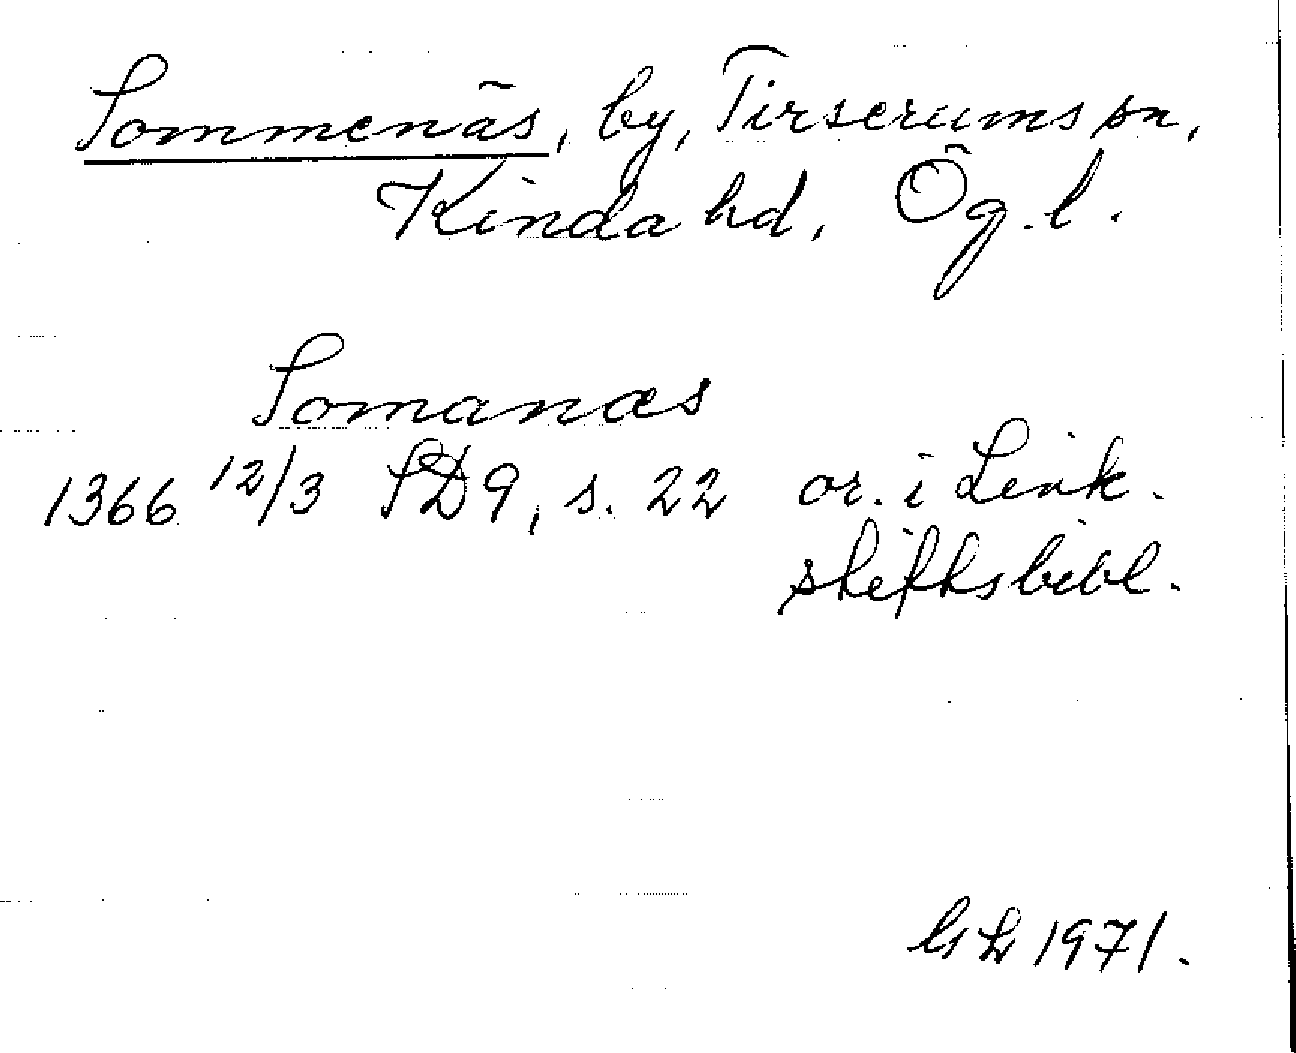 Sommenäs, by, Tirserums sn,
Kinda hd, Ög. l.
Somanæs
1366 12/3 SD 9, s. 22 or. i Link.
stiftsbibl.
GL 1971.